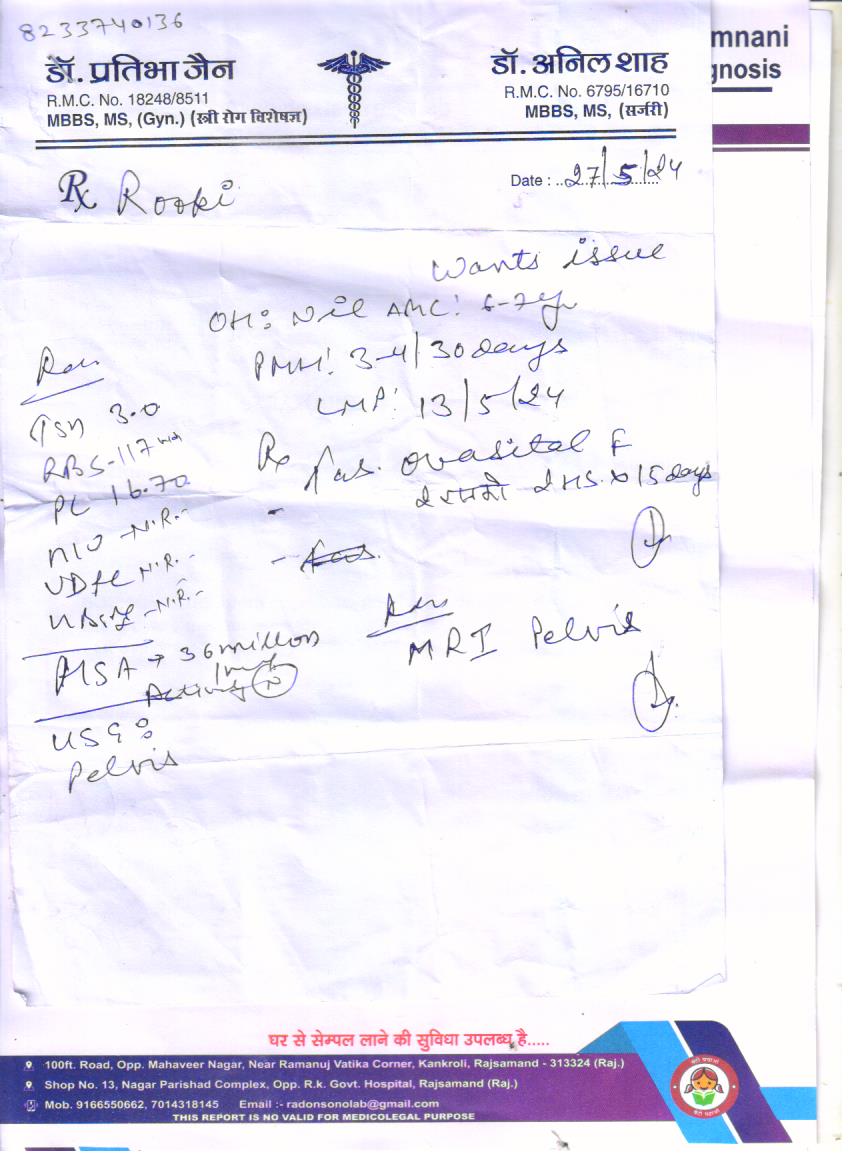 8233740136
mnani
gnosis
डॉ. प्रतिभा जैन
R.M.C. No. 18248/8511
MBBS, MS, (Gyn.) (स्त्री रोग विशेषज्ञ)
डॉ. अनिल शाह
R.M.C. No. 6795/16710
MBBS, MS, (सर्जरी)
Rx Rooki
Date : 27/5/24
Wants issue
OH: Nil AMC: 6-7yr
PMH: 3-4/30 days
LMP: 13/5/24
Rx ovasital F
2 2 HS. x 15 days
MRI Pelvis
TSH 3.0
RBS-117
PL 16.70
N.R.-
N.R.-
N.R.-
HSA → 36 million
Activity N
USG:
Pelvis
घर से सेम्पल लाने की सुविधा उपलब्ध है.....
100ft. Road, Opp. Mahaveer Nagar, Near Ramanuj Vatika Corner, Kankroli, Rajsamand - 313324 (Raj.)
Shop No. 13, Nagar Parishad Complex, Opp. R.k. Govt. Hospital, Rajsamand (Raj.)
Mob. 9166550662, 7014318145 Email :- radonsonolab@gmail.com
THIS REPORT IS NO VALID FOR MEDICOLEGAL PURPOSE